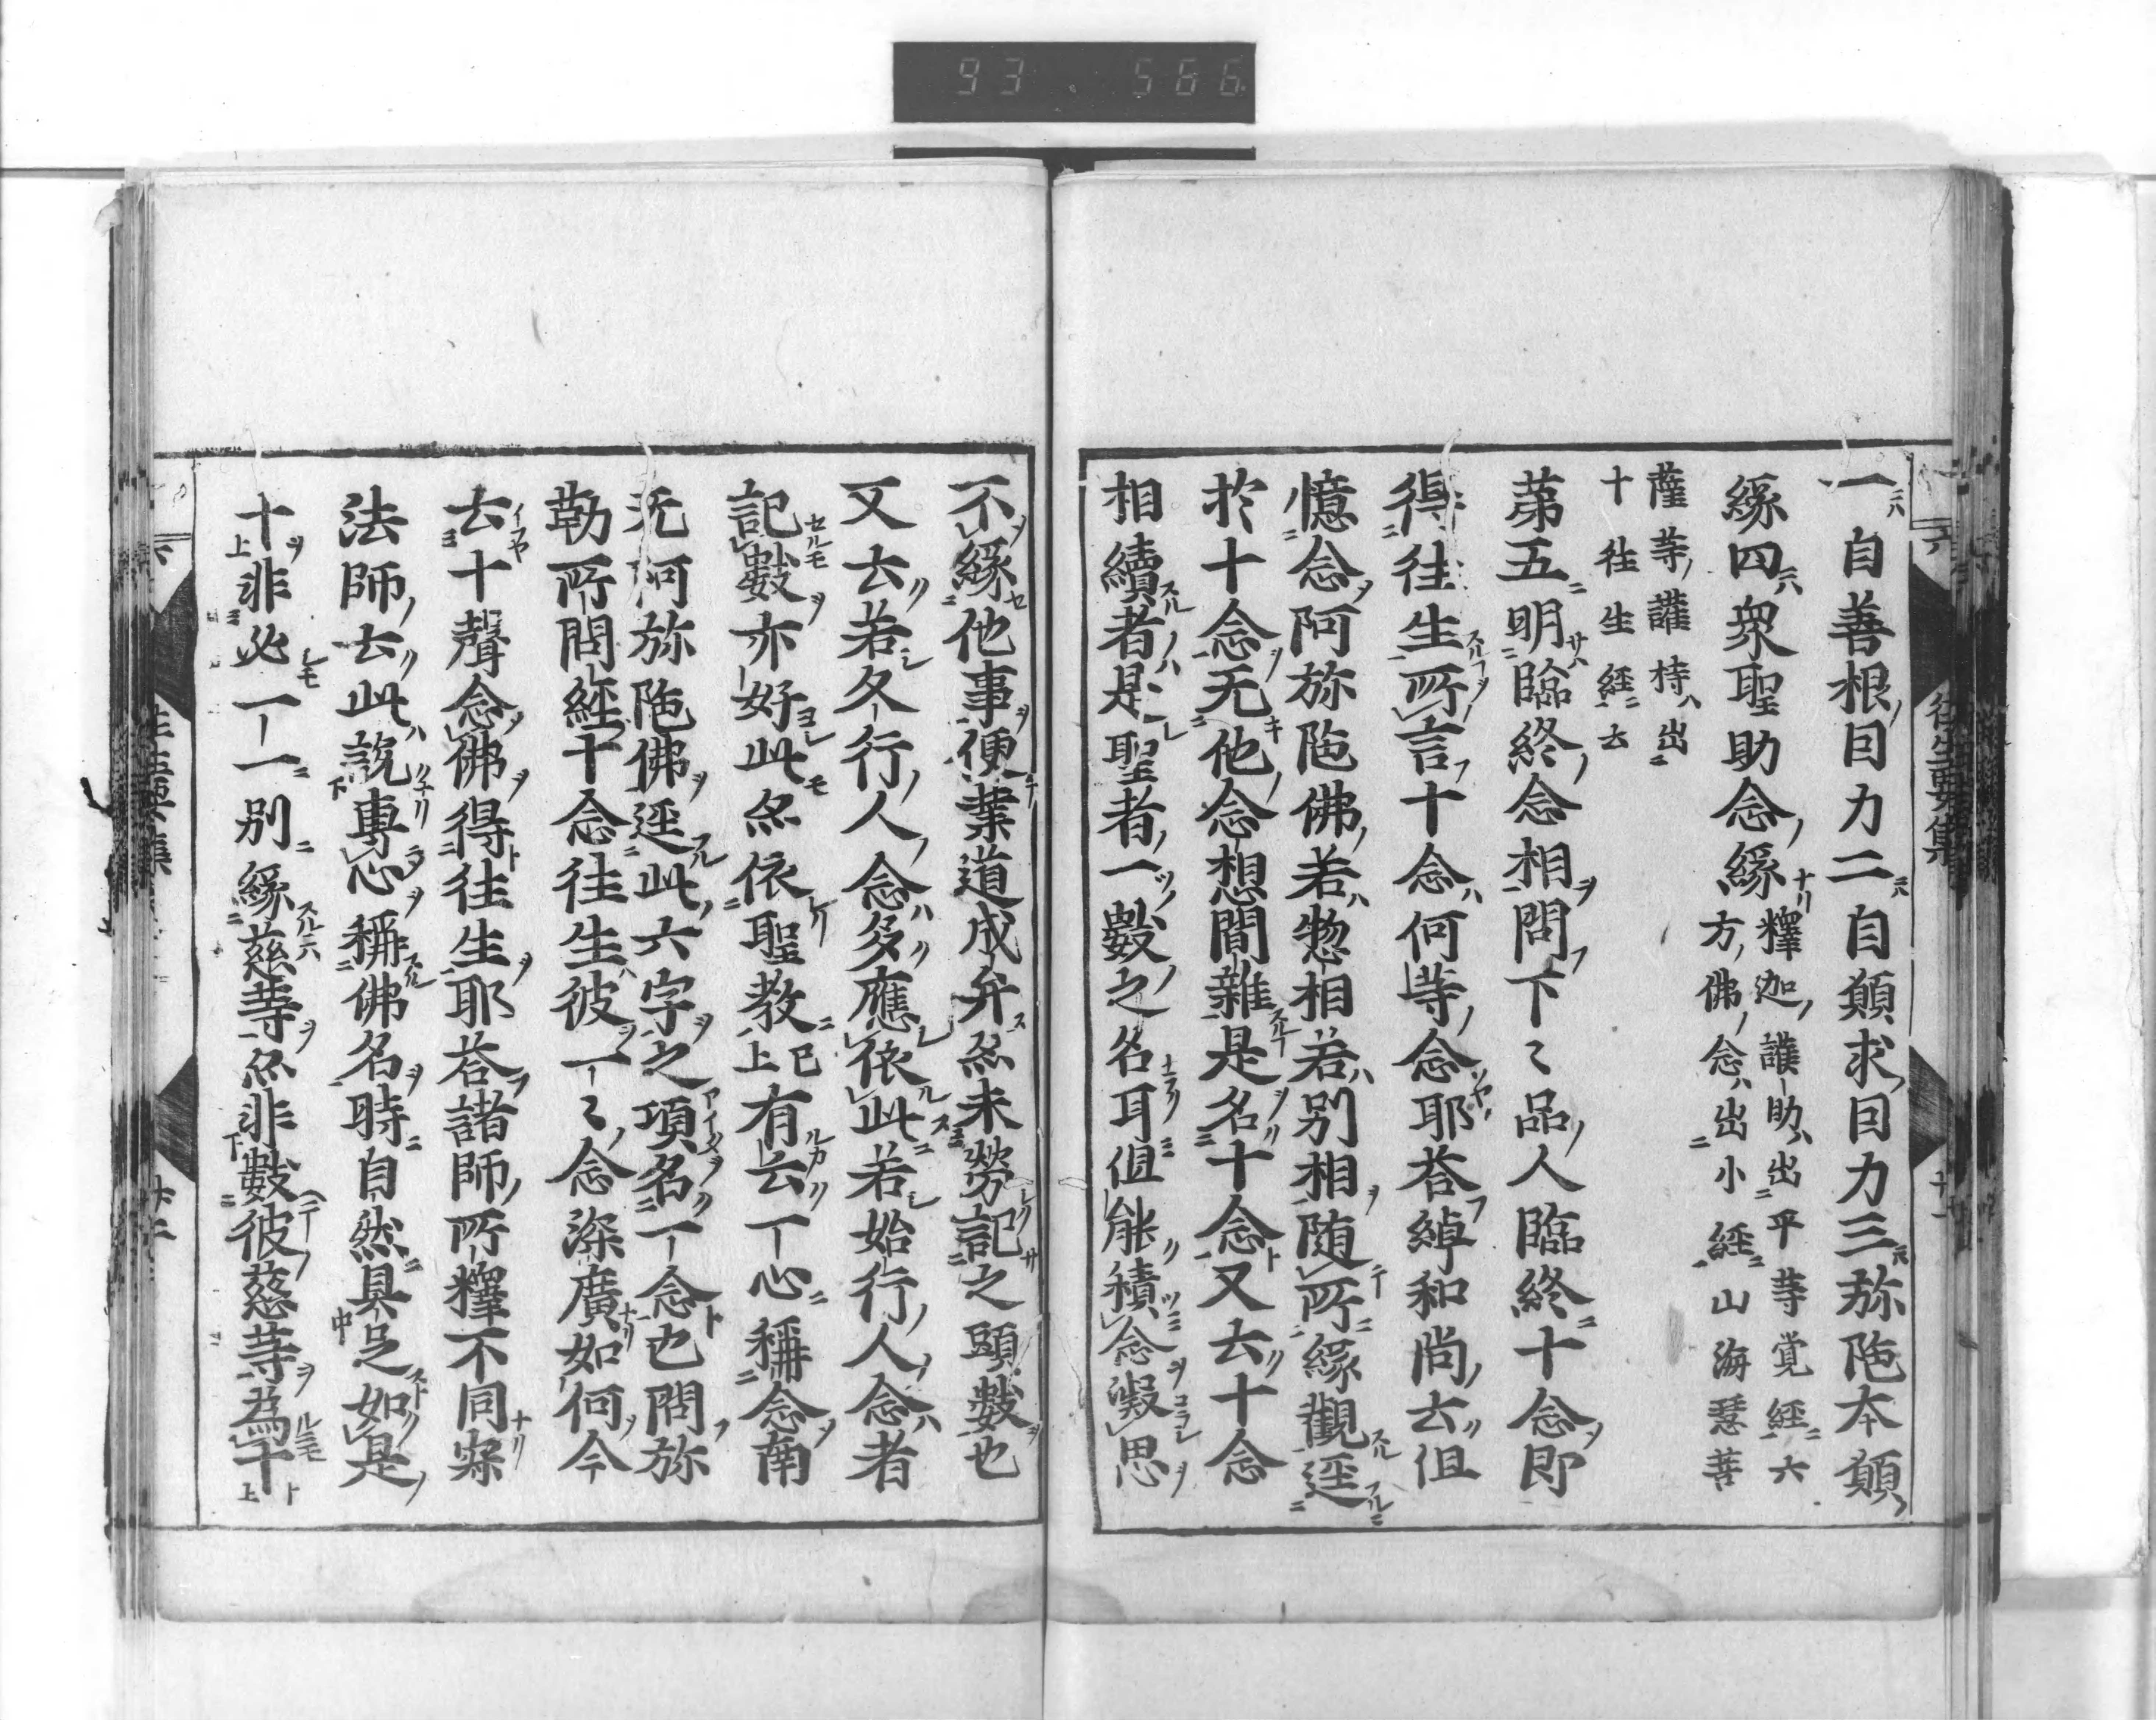 93 566
一自善根因力二自願求因力三弥陁本願
緣四衆聖助念緣釋迦護助出平等覚經六
方佛念出小經山海慧菩
薩等護持出
十往生經云
往生要集
第五明臨終念相問下〻品人臨終十念即
得往生所言十念何等念耶荅綽和尚云但
憶念阿弥陁佛若惣相若別相随所緣觀逕
於十念无他念想間雜是名十念又云十念
相續者是聖者一數之名耳但能積念凝思
不緣他事便業道成弁𠆤未勞記之頭數也
又云若久行人念多應依此若始行人念者
記數亦好此𠆤依聖教已上有云一心稱念南
无阿弥陁佛逕此六字之項名一念也問弥
勒所問經十念往生彼一〻念深廣如何今
云十聲念佛得往生耶荅諸師所釋不同寂
法師云此說專心稱佛名時自然具足如是
十非必一一別緣慈等𠆤非數彼慈等為十
往生要集